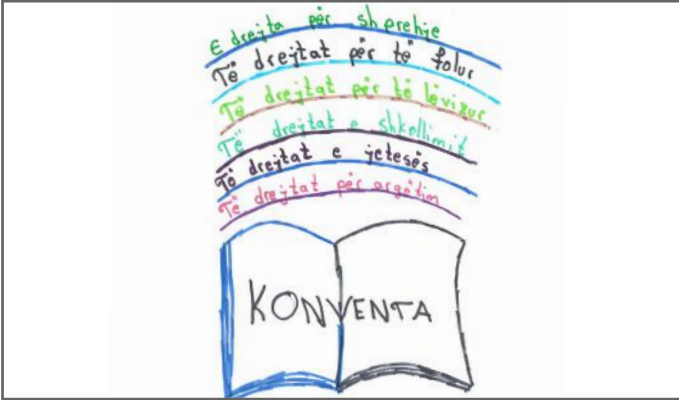 E drejta për shprehje
Të drejtat për të folur
Të drejtat për të lëvizur
Të drejtat e shkollimit
Të drejtat e jetesës
Të drejtat për argëtim
KONVENTA